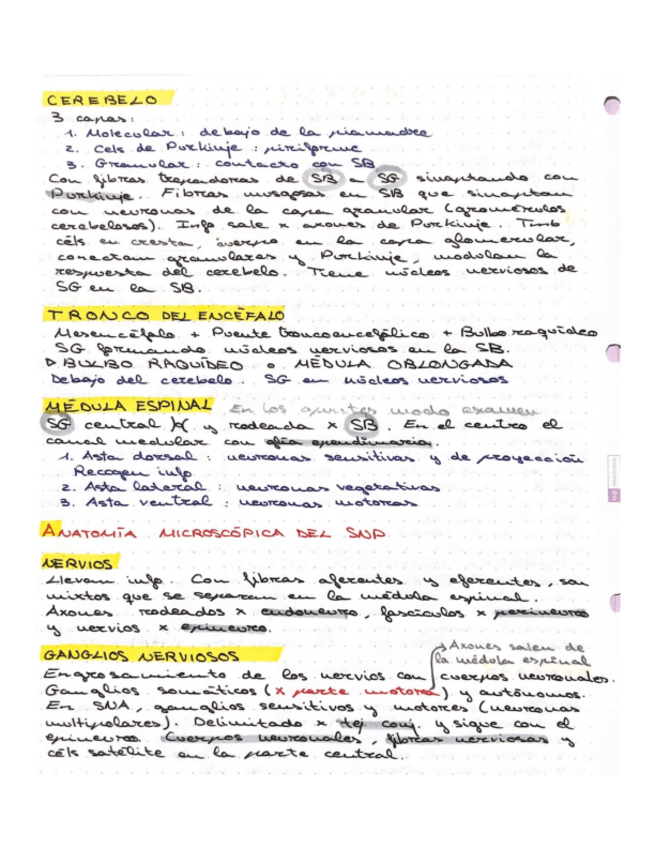 CEREBELO
3 capas:
1. Molecular: debajo de la piamadre
2. Cels de Purkinje: piriforme
3. Granular: contacto con SB
Con fibras trepadoras de SB a SG sinaptando con
Purkinje. Fibras musgosas en SB que sinaptan
con neuronas de la capa granular (glomérulos
cerebelosos). Info sale x axones de Purkinje. Tmb
céls en cresta, cuerpo en la capa glomerular,
conectan granulares y Purkinje, modulan la
respuesta del cerebelo. Tiene núcleos nerviosos de
SG en la SB.
TRONCO DEL ENCÉFALO
Mesencéfalo + Puente troncoencefálico + Bulbo raquídeo
SG formando núcleos nerviosos en la SB.
BULBO RAQUÍDEO o MÉDULA OBLONGADA
Debajo del cerebelo. SG en núcleos nerviosos
MÉDULA ESPINAL En los apuntes modo examen
SG central y rodeada x SB. En el centro el
canal medular con glía ependimaria.
1. Asta dorsal: neuronas sensitivas y de proyección
Recogen info
2. Asta lateral: neuronas vegetativas
3. Asta ventral: neuronas motoras
ANATOMÍA MICROSCÓPICA DEL SNP
NERVIOS
Llevan info. Con fibras aferentes y eferentes, son
mixtos que se separan en la médula espinal.
Axones rodeados x endoneuro, fascículos x perineuro
y nervios x epineuro.
→ Axones salen de
la médula espinal
GANGLIOS NERVIOSOS
Engrosamiento de los nervios con cuerpos neuronales.
Ganglios somáticos (x parte motora) y autónomos.
En SNA, ganglios sensitivos y motores (neuronas
multipolares). Delimitado x tej. conj. y sigue con el
epineuro. Cuerpos neuronales, fibras nerviosas y
céls satélite en la parte central.